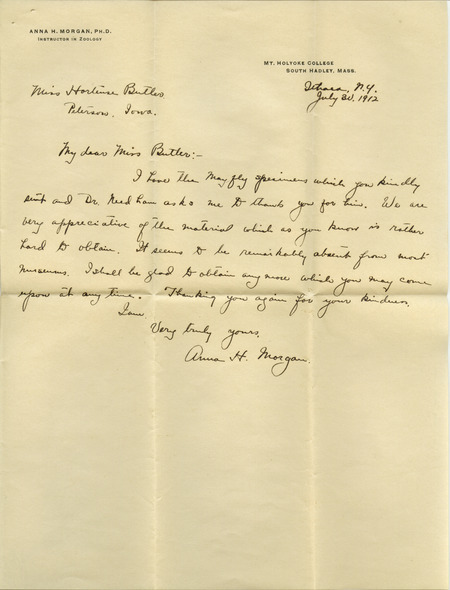 ANNA H. MORGAN, PH.D.
INSTRUCTOR IN ZOOLOGY
MT. HOLYOKE COLLEGE
SOUTH HADLEY, MASS.
Ithaca, N.Y.
July 30, 1912
Miss Hortense Butler
Peterson, Iowa.
My dear Miss Butler:-
I have the Mayfly specimens which you kindly
sent and Dr. Needham asks me to thank you for him. We are
very appreciative of the material which as you know is rather
hard to obtain. It seems to be remarkably absent from most
museums. I shall be glad to obtain any more which you may come
upon at any time. Thanking you again for your kindness,
I am
Very truly yours,
Anna H. Morgan.